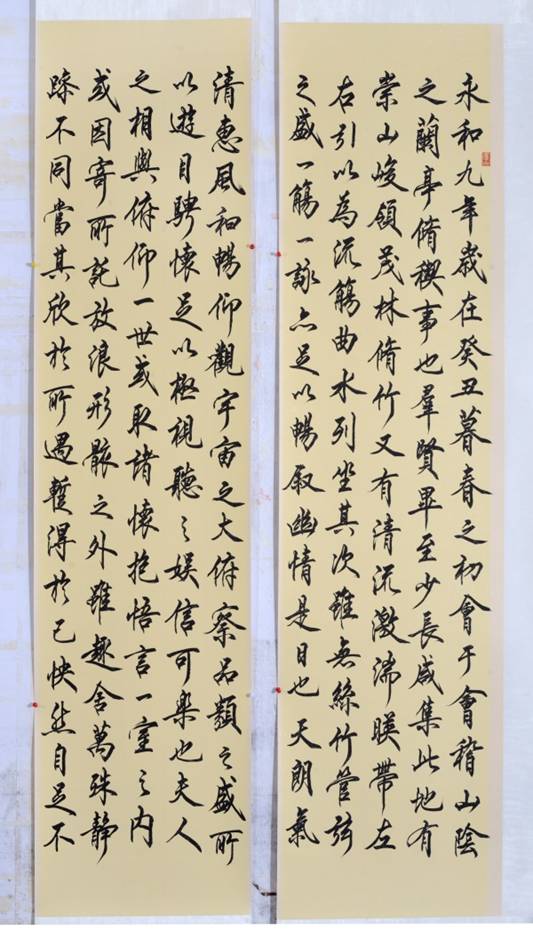 永和九年歲在癸丑暮春之初會于會稽山陰
之蘭亭脩禊事也羣賢畢至少長咸集此地有
崇山峻領茂林脩竹又有清流激湍暎帶左
右引以為流觴曲水列坐其次雖無絲竹管弦
之盛一觴一詠亦足以暢叙幽情是日也天朗氣
清惠風和暢仰觀宇宙之大俯察品類之盛所
以遊目騁懷足以極視聽之娛信可樂也夫人
之相與俯仰一世或取諸懷抱悟言一室之內
或因寄所託放浪形骸之外雖趣舍萬殊静
躁不同當其欣於所遇蹔得於己怏然自足不